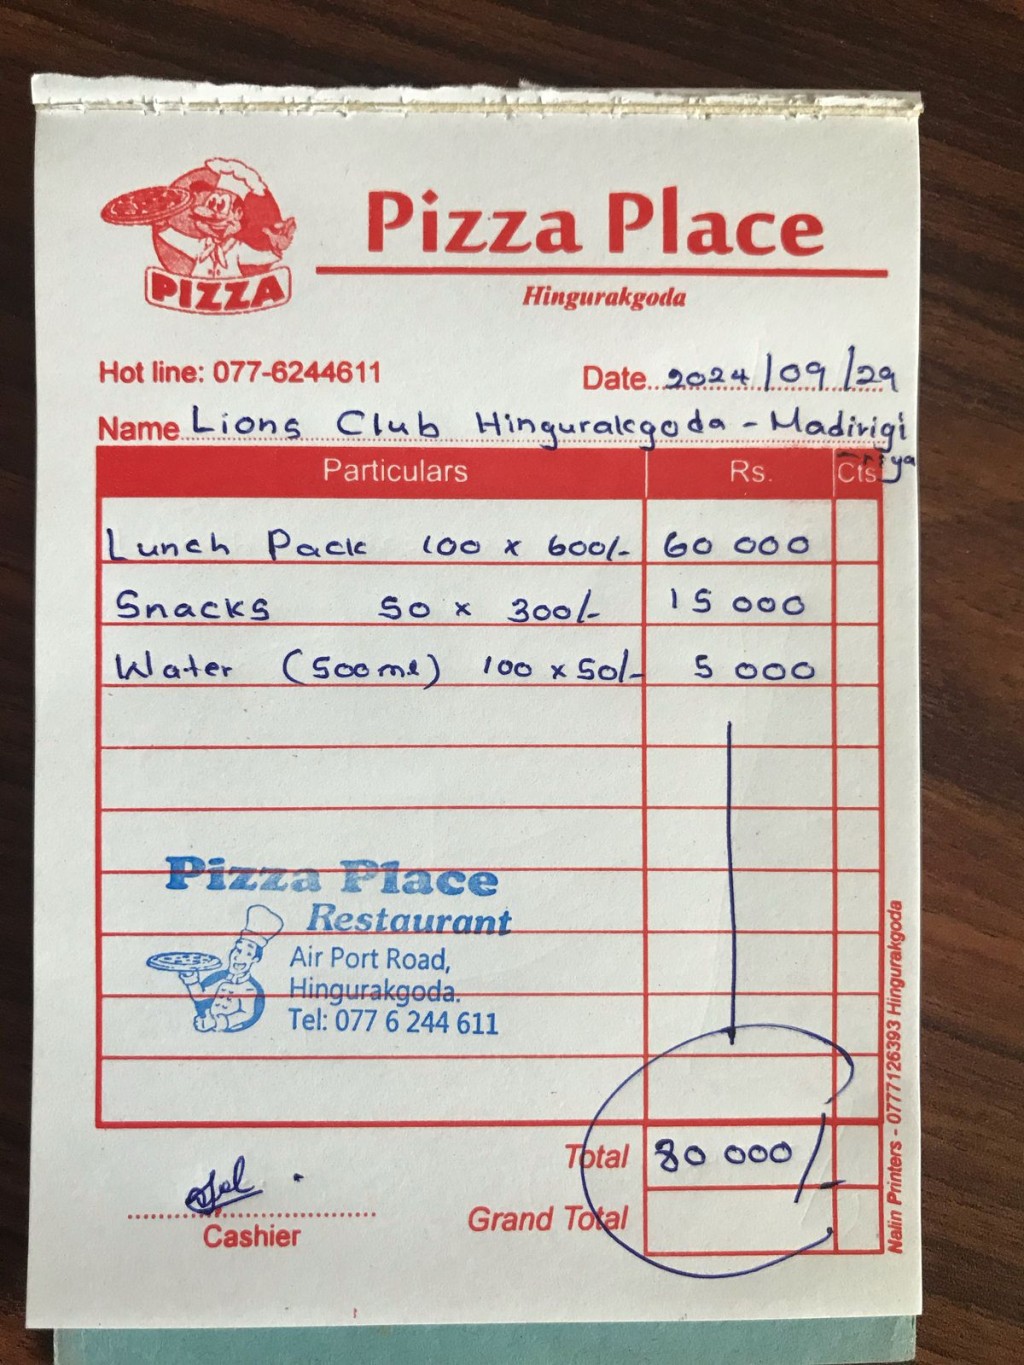 PIZZA
Pizza Place
Hingurakgoda
Hot line: 077-6244611
Date 2024/09/29
Name Lions Club Hingurakgoda - Madirigi
riya
Particulars Rs. Cts
Lunch Pack 100 x 600/- 60 000
Snacks 50 x 300/- 15 000
Water (500ml) 100 x 50/- 5 000
Pizza Place
Restaurant
Air Port Road,
Hingurakgoda.
Tel: 077 6 244 611
Total 80 000/-
Grand Total
Cashier
Nalin Printers - 0777126393 Hingurakgoda